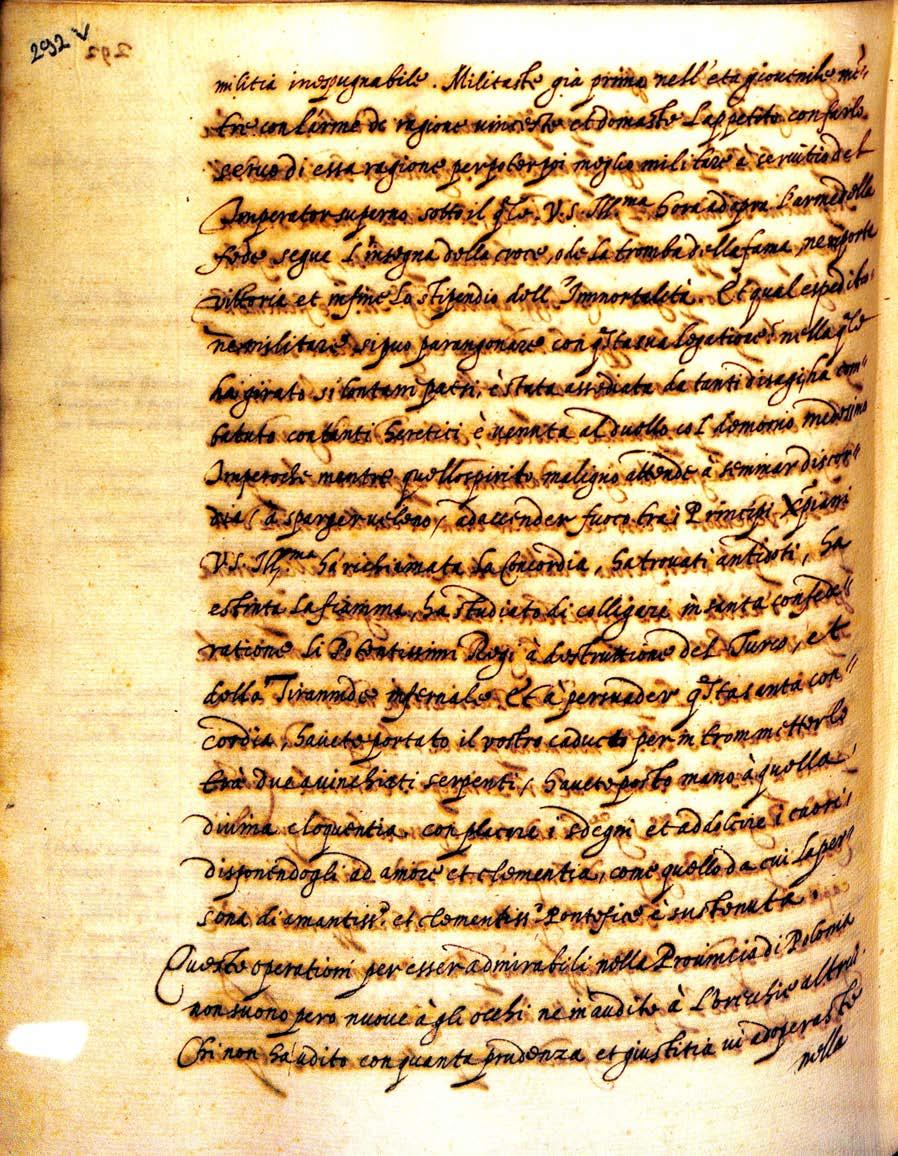 292 v
292
militia inespugnabile. Militaste già prima nell'età giovenile mē-
tre con l'arme di ragione vinceste et domaste l'appetito con farlo
servo di essa ragione per poter poi meglio militare à servitio del
Imperator superno sotto il qle. V.S. Ill.ma hora adopra l'arme della
fede segue l'insegna della croce, ode la tromba della fama, ne riporta
vittoria et infine lo stipendio dell'Immortalità. Et qual espeditio-
ne militare si può parangonare con qsta sua legatione? nella qle
ha girato si lontani paesi, è stata assediata da tanti disagi, ha com-
batuto con tanti heretici, è venuta al duello col demonio medesimo
Imperoche mentre quello spirito maligno attende à semminar discor-
dia, à sparger veleno, ad accender fuoco tra i Principi Xpiani
V.S. Ill.ma ha richiamata la Concordia, ha trovati antidoti, ha
estinta la fiamma, ha studiato di colligare in santa confede-
ratione li Potentissimi Regi à destruttione del Turco, et
della Tirannide infernale. Et à persuader qsta santa con-
cordia, havete portato il vostro caduceo per intrommetterlo
trà due avinchiati serpenti, havete posto mano à quella
divina eloquentia con placare i sdegni et addolcire i cuori
disponendogli ad amore et clementia, come quello da cui la per-
sona di amantiss.o et clementiss.o Pontefice è sustenuta.
Queste operationi per esser admirabili nella Provincia di Polonia
non suono pero nuove à gli occhi ne inaudite à l'orecchie altrui.
Chi non ha udito con quanta prudenza et giustitia vi adoperaste
nella